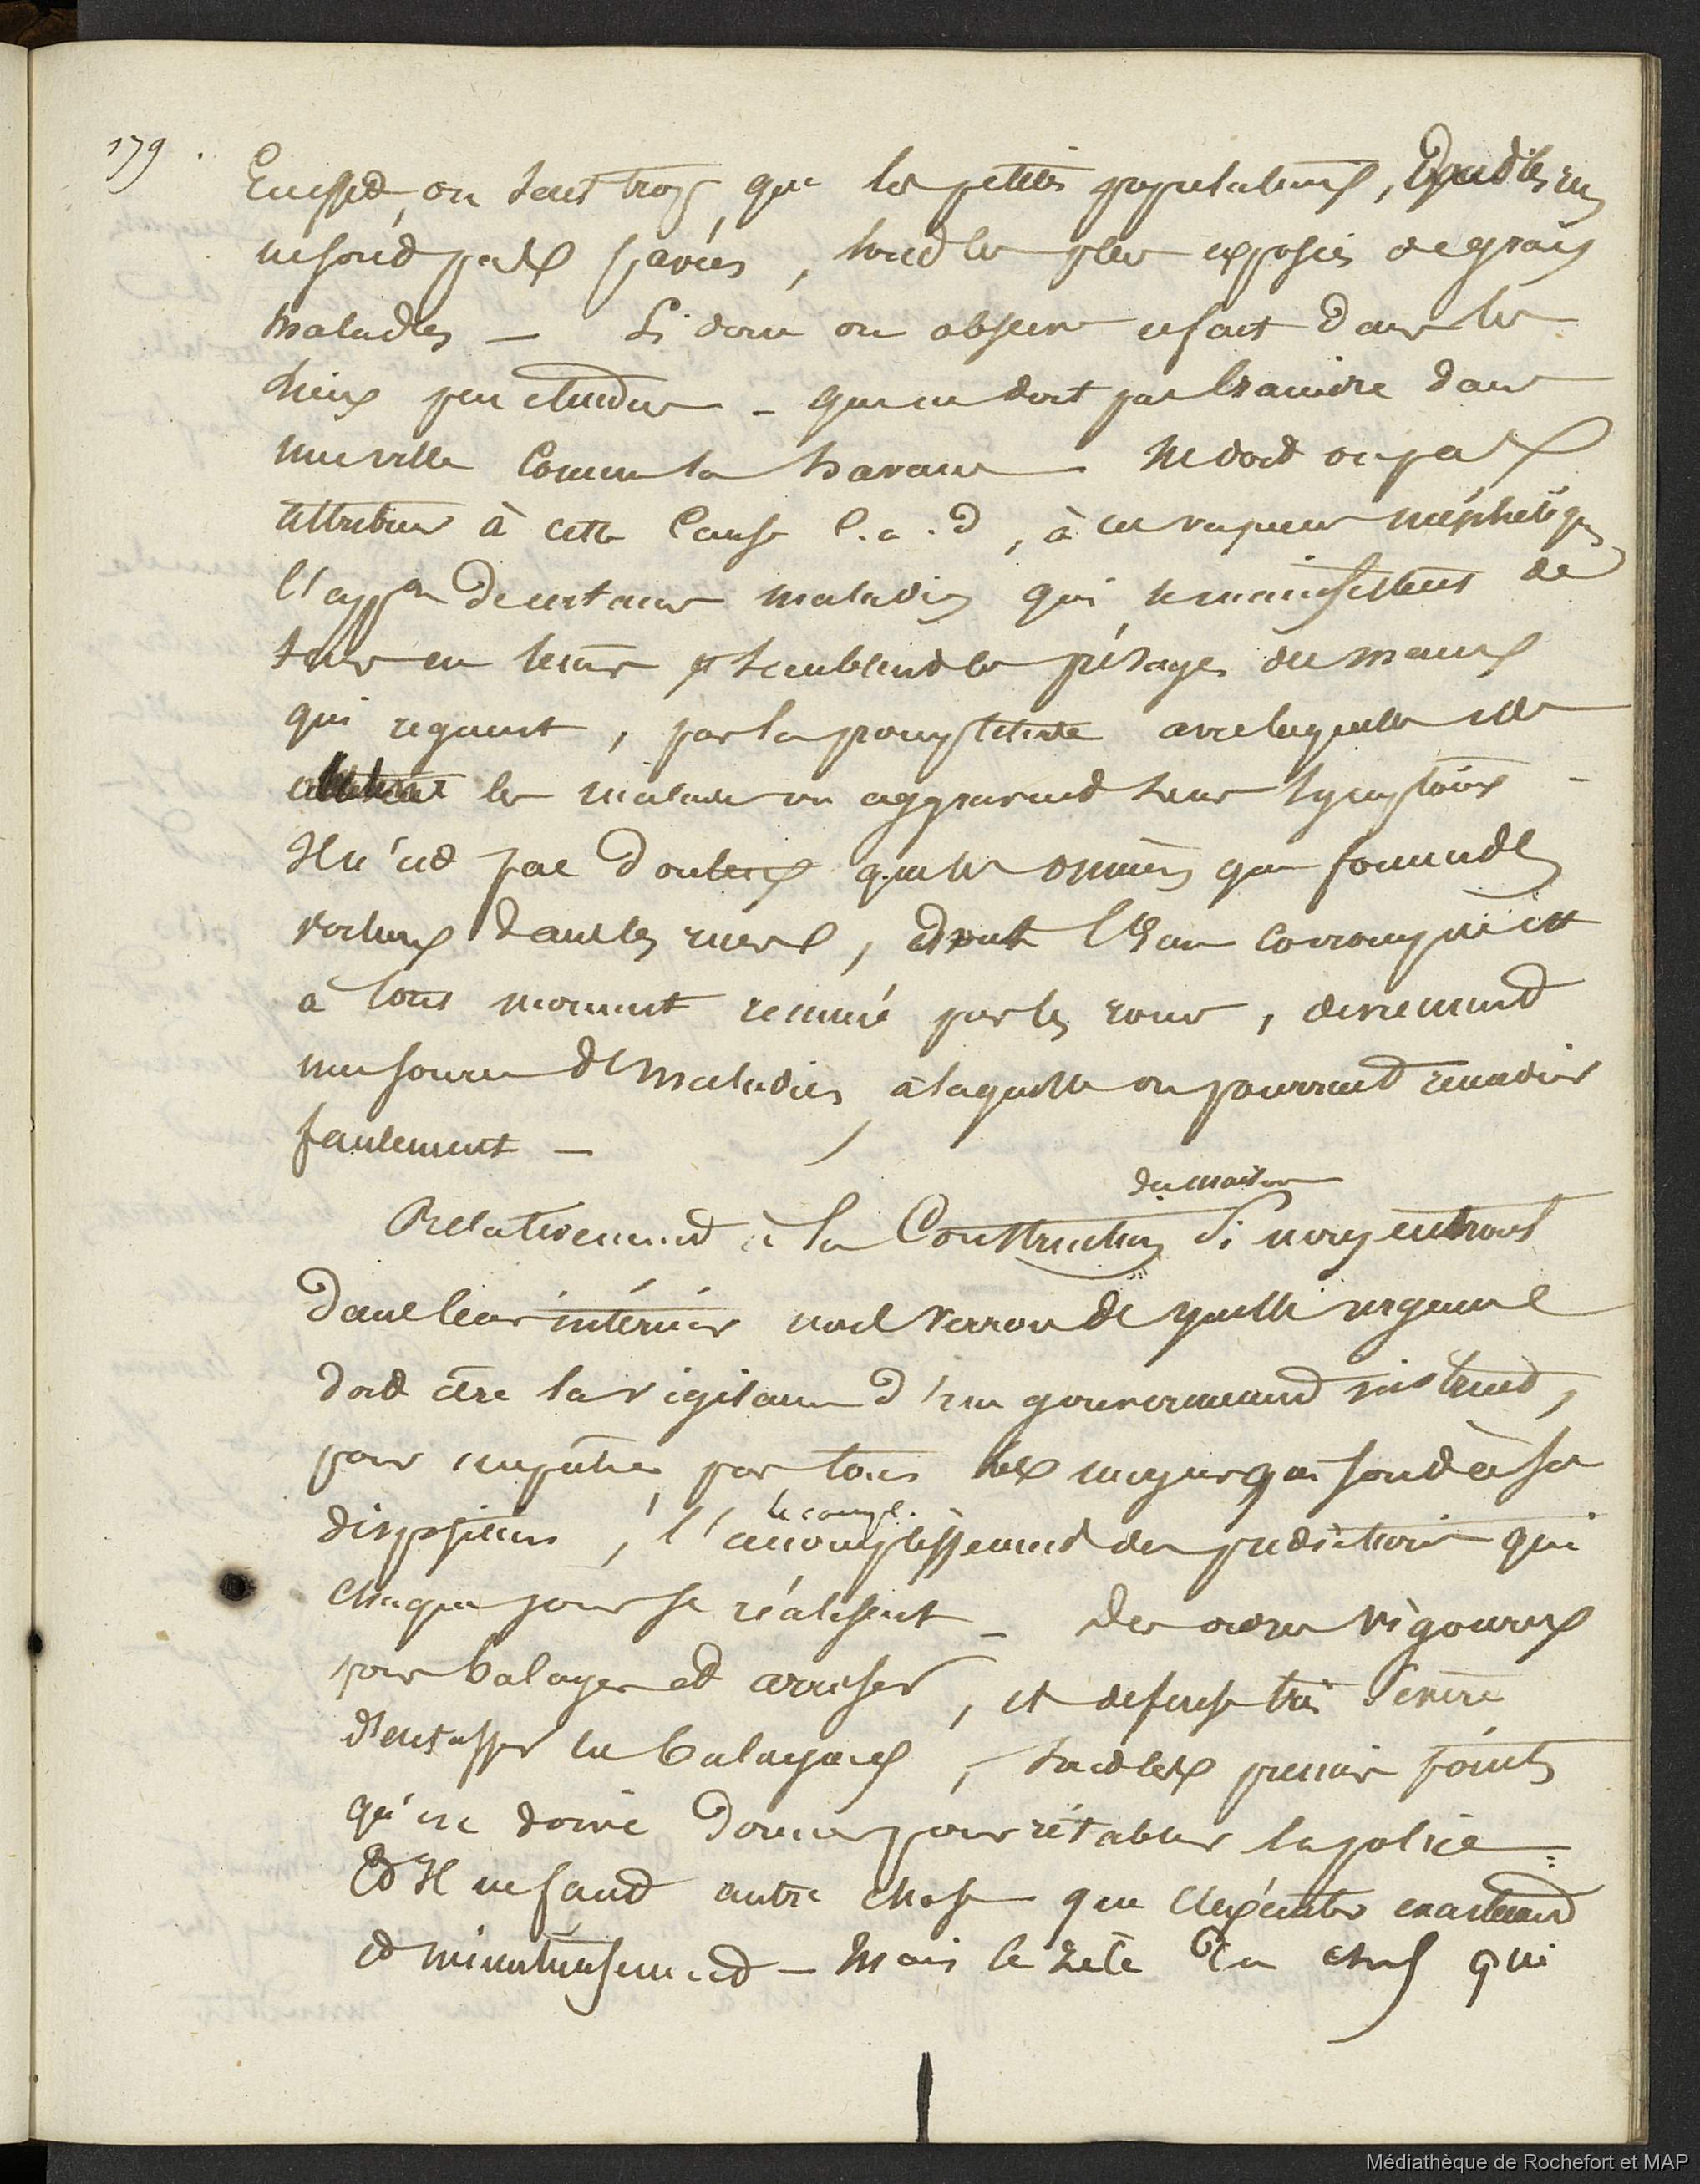 179.
En effet, on sait trop que les petites populations, dont les rues
ne sont pas pavées, sont les plus exposées de graves
maladies — Si donc on observe ce fait dans les
lieux peu étendus — que ne doit pas craindre dans
une ville comme la havane — Ne doit on pas
attribuer à cette cause C. a. d, à ces vapeurs méphitiques
l'app.on de certaines maladies qui se manifestent de
tems en tems et semblent le présage des maux
qui regnent, par la promptitude avec laquelle elles
les malades en aggravant leurs symptômes —
Il n'est pas douteux que les ornières que forment les
voitures dans les rues, dont l'Eau corrompue est
à tous moment remué par les roues, deviennent
une source de maladies à laquelle on pourrait remédier
facilement —
des maisons
Relativement à la Construction Si nous entrons
dans leur intérieur nous verrons de quelle urgence
doit être la vigilance d'un gouvernement instruit,
pour empêcher par tous les moyens qui sont à sa
disposition, l'accomplissement des prédictions qui
chaque jour se réalisent — des ordres rigoureux
pour balayer et arroser, et defense très sévère
d'entasser les balayures, sont les premiers points
qu'on doive donner pour rétablir la police
Et Il ne faut autre chose que l'exécuter exactement
et minutieusement — Mais le zèle d'un chef qui
Médiathèque de Rochefort et MAP